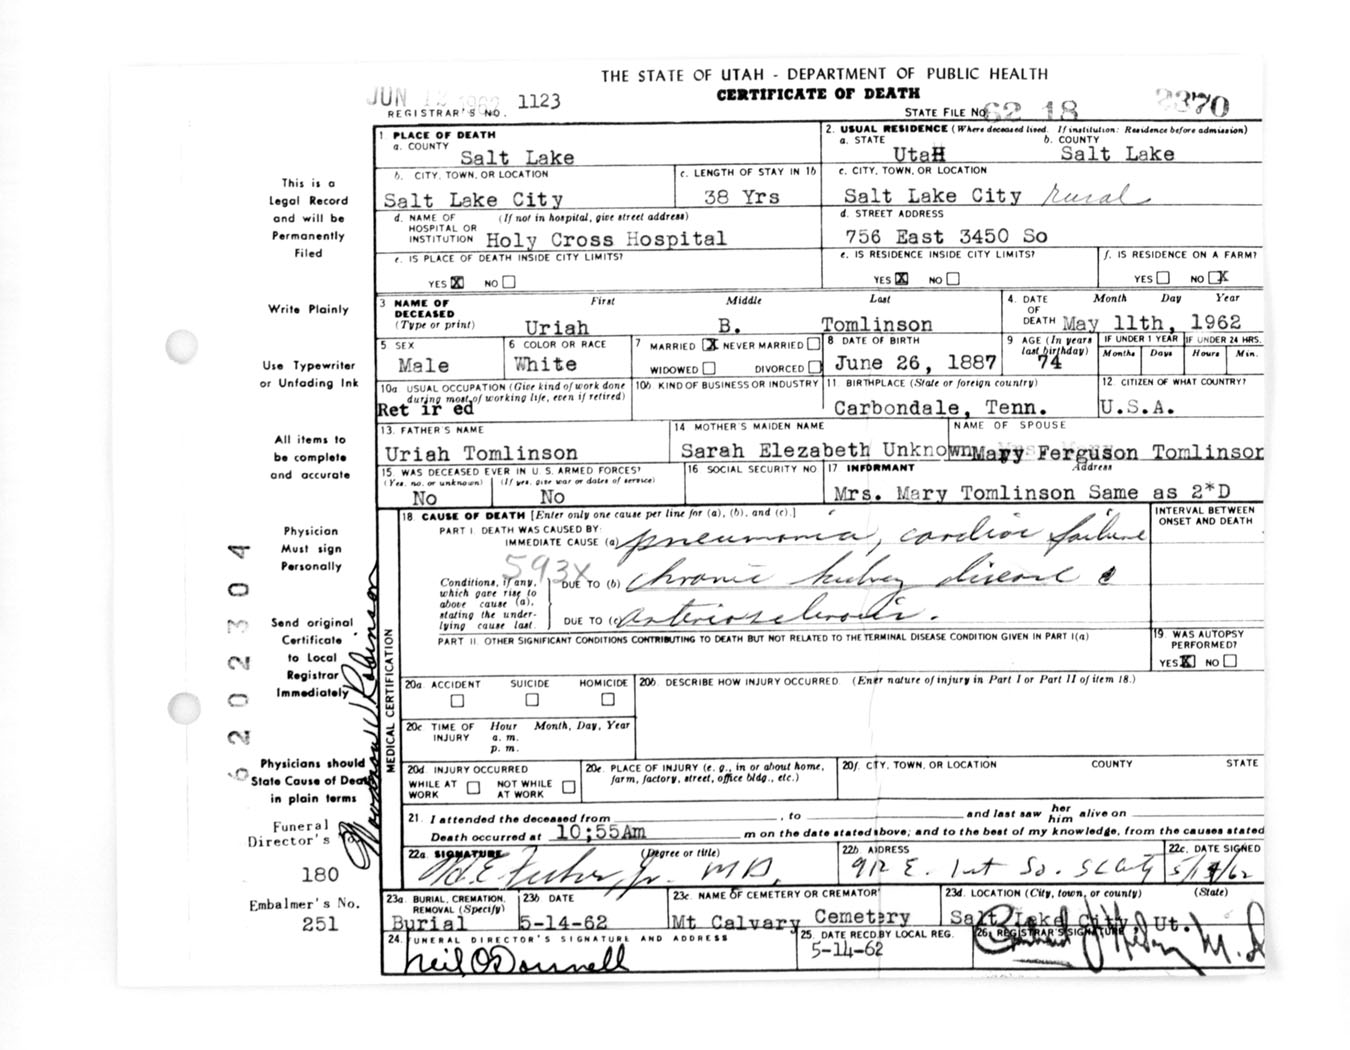 THE STATE OF UTAH - DEPARTMENT OF PUBLIC HEALTH
CERTIFICATE OF DEATH
JUN 12 1962 1123
REGISTRAR'S NO.
STATE FILE NO. 62 18 2370
1 PLACE OF DEATH
a. COUNTY Salt Lake
2. USUAL RESIDENCE (Where deceased lived. If institution: Residence before admission)
a. STATE UtaH b. COUNTY Salt Lake
b. CITY, TOWN, OR LOCATION Salt Lake City
c. LENGTH OF STAY IN 1b 38 Yrs
c. CITY, TOWN, OR LOCATION Salt Lake City rural
d. NAME OF HOSPITAL OR INSTITUTION (If not in hospital, give street address) Holy Cross Hospital
d. STREET ADDRESS 756 East 3450 So
e. IS PLACE OF DEATH INSIDE CITY LIMITS?
YES X NO
e. IS RESIDENCE INSIDE CITY LIMITS?
YES X NO
f. IS RESIDENCE ON A FARM?
YES NO X
3 NAME OF DECEASED (Type or print)
First Middle Last
Uriah B. Tomlinson
4. DATE OF DEATH Month Day Year
May 11th, 1962
5 SEX Male
6 COLOR OR RACE White
7 MARRIED X NEVER MARRIED
WIDOWED DIVORCED
8 DATE OF BIRTH June 26, 1887
9 AGE (In years last birthday) 74
IF UNDER 1 YEAR Months Days
IF UNDER 24 HRS. Hours Min.
10a USUAL OCCUPATION (Give kind of work done during most of working life, even if retired)
Ret ir ed
10b KIND OF BUSINESS OR INDUSTRY
11 BIRTHPLACE (State or foreign country)
Carbondale, Tenn.
12. CITIZEN OF WHAT COUNTRY?
U.S.A.
13. FATHER'S NAME
Uriah Tomlinson
14 MOTHER'S MAIDEN NAME
Sarah Elezabeth Unknown
NAME OF SPOUSE
Mary Ferguson Tomlinson
15. WAS DECEASED EVER IN U. S. ARMED FORCES?
(Yes, no, or unknown) (If yes, give war or dates of service)
No No
16 SOCIAL SECURITY NO
17 INFORMANT Address
Mrs. Mary Tomlinson Same as 2*D
18. CAUSE OF DEATH [Enter only one cause per line for (a), (b), and (c).]
INTERVAL BETWEEN ONSET AND DEATH
PART I. DEATH WAS CAUSED BY:
IMMEDIATE CAUSE (a) pneumonia, cardiac failure
593X
Conditions, if any, which gave rise to above cause (a), stating the underlying cause last.
DUE TO (b) chronic kidney disease c
DUE TO (c) arteriosclerosis.
PART II. OTHER SIGNIFICANT CONDITIONS CONTRIBUTING TO DEATH BUT NOT RELATED TO THE TERMINAL DISEASE CONDITION GIVEN IN PART I(a)
19. WAS AUTOPSY PERFORMED?
YES X NO
MEDICAL CERTIFICATION
20a. ACCIDENT SUICIDE HOMICIDE
20b. DESCRIBE HOW INJURY OCCURRED (Enter nature of injury in Part I or Part II of item 18.)
20c TIME OF INJURY Hour a. m. p. m. Month, Day, Year
20d. INJURY OCCURRED
WHILE AT WORK NOT WHILE AT WORK
20e. PLACE OF INJURY (e. g., in or about home, farm, factory, street, office bldg., etc.)
20f. CITY, TOWN, OR LOCATION COUNTY STATE
21. I attended the deceased from , to and last saw her him alive on
Death occurred at 10;55Am m on the date stated above; and to the best of my knowledge, from the causes stated
22a. SIGNATURE (Degree or title)
Jr. M D.
22b ADDRESS
912 E. 1st So. SL City
22c. DATE SIGNED
5/14/62
23a. BURIAL, CREMATION, REMOVAL (Specify)
Burial
23b DATE
5-14-62
23c NAME OF CEMETERY OR CREMATORY
Mt Calvary Cemetery
23d. LOCATION (City, town, or county) (State)
Salt Lake City, Ut.
24. FUNERAL DIRECTOR'S SIGNATURE AND ADDRESS
Neil O'Donnell
25. DATE RECD. BY LOCAL REG.
5-14-62
26. REGISTRAR'S SIGNATURE
M. D
This is a
Legal Record
and will be
Permanently
Filed
Write Plainly
Use Typewriter
or Unfading Ink
All items to
be complete
and accurate
Physician
Must sign
Personally
Send original
Certificate
to Local
Registrar
Immediately
Physicians should
State Cause of Death
in plain terms
Funeral
Director's
180
Embalmer's No.
251
6202304
Robinson